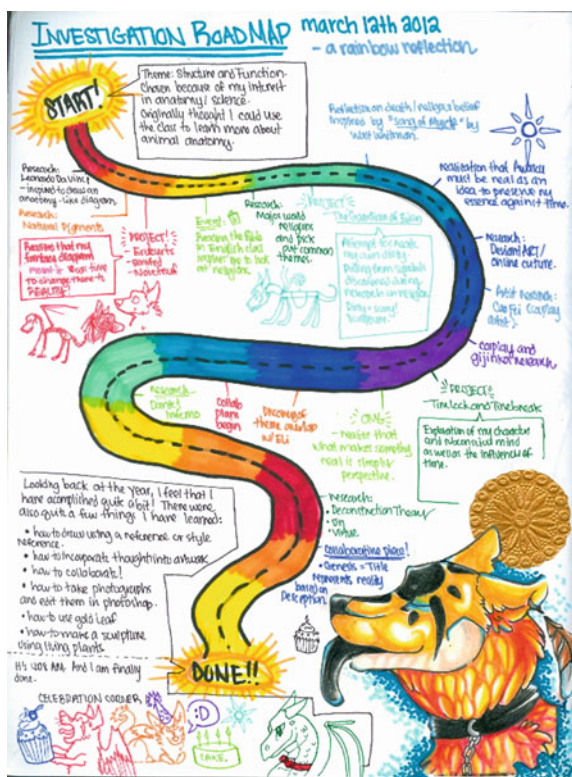 INVESTIGATION ROADMAP
march 12th 2012
- a rainbow reflection
START!
Theme: Structure and Function-
Chosen because of my interest
in anatomy/science.
Originally thought I could use
the class to learn more about
animal anatomy.
Reflection on death/religous belief
inspired by "Song of Myself" by
Walt Whitman.
Realization that
must be real as an
idea to preserve my
essence against time.
Research:
Leonardo Da Vinci
- inspired to draw an
anatomy-like diagram.
Research:
Natural Pigments
PROJECT!
Realize that my
fantasy diagram
time
to change them to
REALITY!
Event:
Reading the Bible
in English class
me to look
at religion.
Research:
Major world
religions
and pick
out common
themes.
PROJECT
The Guardian of
Attempt to create
my own deity.
Pulling from symbols
discovered during
research on religion.
Research:
Deviant ART/
online culture.
Artist Research:
(cosplay
artist).
cosplay and
gijinka research
PROJECT
Timelock and Timebreak
Explanation of my character
and subconscious mind
as well as the influences of
time.
Research-
Dante's
Inferno
collab
plans
begin
Discovery of
theme overlap
w/ Eli
OMG
- realize that
what makes something
real is simply
perspective.
Research:
• Deconstruction Theory
• Sin
• Virtue
collaborative piece!
• Genesis = Title
represents reality
based on
perception.
Looking back at the year, I feel that I
have accomplished quite a bit! There were
also quite a few things I have learned:
• how to draw using a reference or style
reference.
• how to incorporate thought into artwork
• how to collaborate!
• how to take photographs
and edit them in photoshop.
• how to use gold leaf
• how to make a sculpture
using living plants
It's 12:08 AM. And I am finally
done.
DONE!!
CELEBRATION CORNER
:D
CAKE.